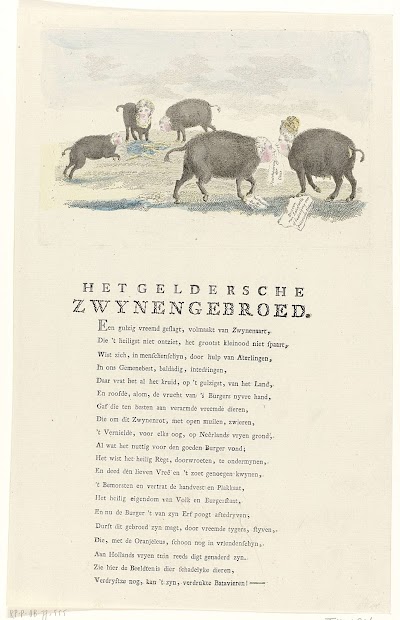 HET GELDERSCHE
ZWYNENGEBROED.
Een gulzig vreemd geslagt, volmaakt van Zwynenaart,
Die 't heiligst niet ontziet, het grootst kleinood niet spaart,
Wist zich, in menschenschyn, door hulp van Aterlingen,
In ons Gemenebest, baldadig, intedringen,
Daar vrat het al het kruid, op 't gulzigst, van het Land,
En roofde, alom, de vrucht van 's Burgers nyvre hand,
Gaf die ten besten aan verarmde vreemde dieren,
Die om dit Zwynenrot, met open muilen, zwieren,
't Vernielde, voor elks oog, op Nederlands vryen grond,
Al wat het nuttig voor den goeden Burger vond;
Het wist het heilig Regt, doorwroeten, te ondermynen,
En deed dên lieven Vreê en 't zoet genoegen kwynen,
't Bemorsten en vertrat de handvest en Plakkaat,
Het heilig eigendom van Volk en Burgerstaat,
En nu de Burger 't van zyn Erf poogt aftedryven,
Durft dit gebroed zyn magt, door vreemde tygers, styven,
Die, met de Oranjeleus, schoon nog in vriendenschyn,
Aan Hollands vryen tuin reeds digt genaderd zyn.
Zie hier de Beeldtenis dier schadelyke dieren,
Verdryftze nog, kan 't zyn, verdrukte Batavieren! —